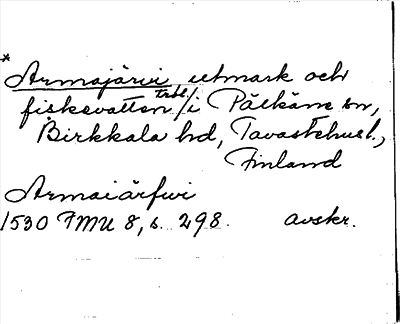 * Armajärvi utmark och
fiskevatten trol. / i Pälkäne sn,
Birkkala hd, Tavastehus l.,
Finland
Armaiärfwi
1530 FMU 8, s. 298. avskr.